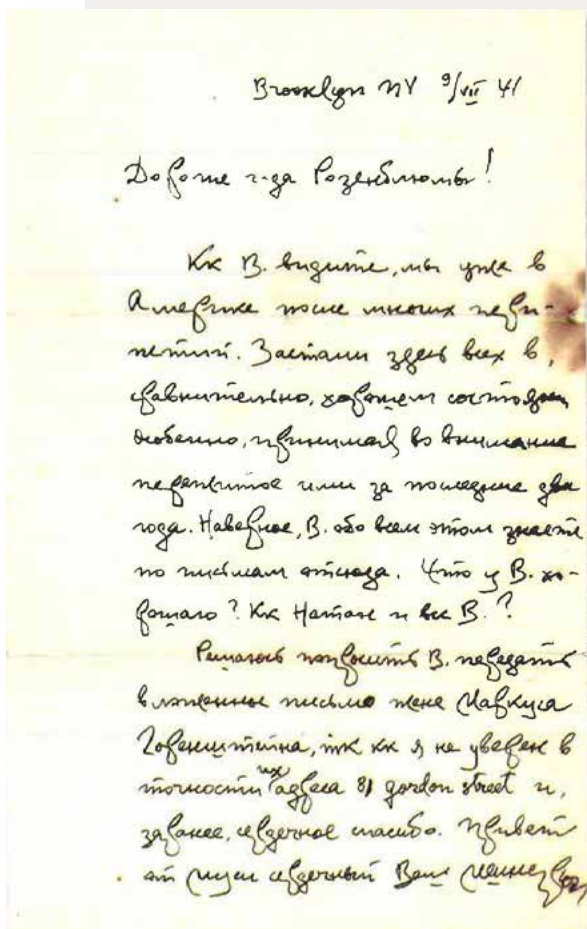 Brooklyn NY 9/VII 41
Дорогие г-да Розенблюмы!
Кк В. видите, мы уже в
Америке после многих пери-
петий. Застали здесь всех в,
сравнительно, хорошем состоянии
особенно, принимая во внимание
пережитое ими за последние два
года. Наверное, В. обо всем этом знаете
по письмам отсюда. Что у В. хо-
рошаго? Кк Натан и все В.?
Решаюсь попросить В. передать
вложенное письмо жене Маркуса
Горенштейна, тк кк я не уверен в
точности их адреса 81 gordon street и,
заранее, сердечное спасибо. Привет
от сердечный Ваш